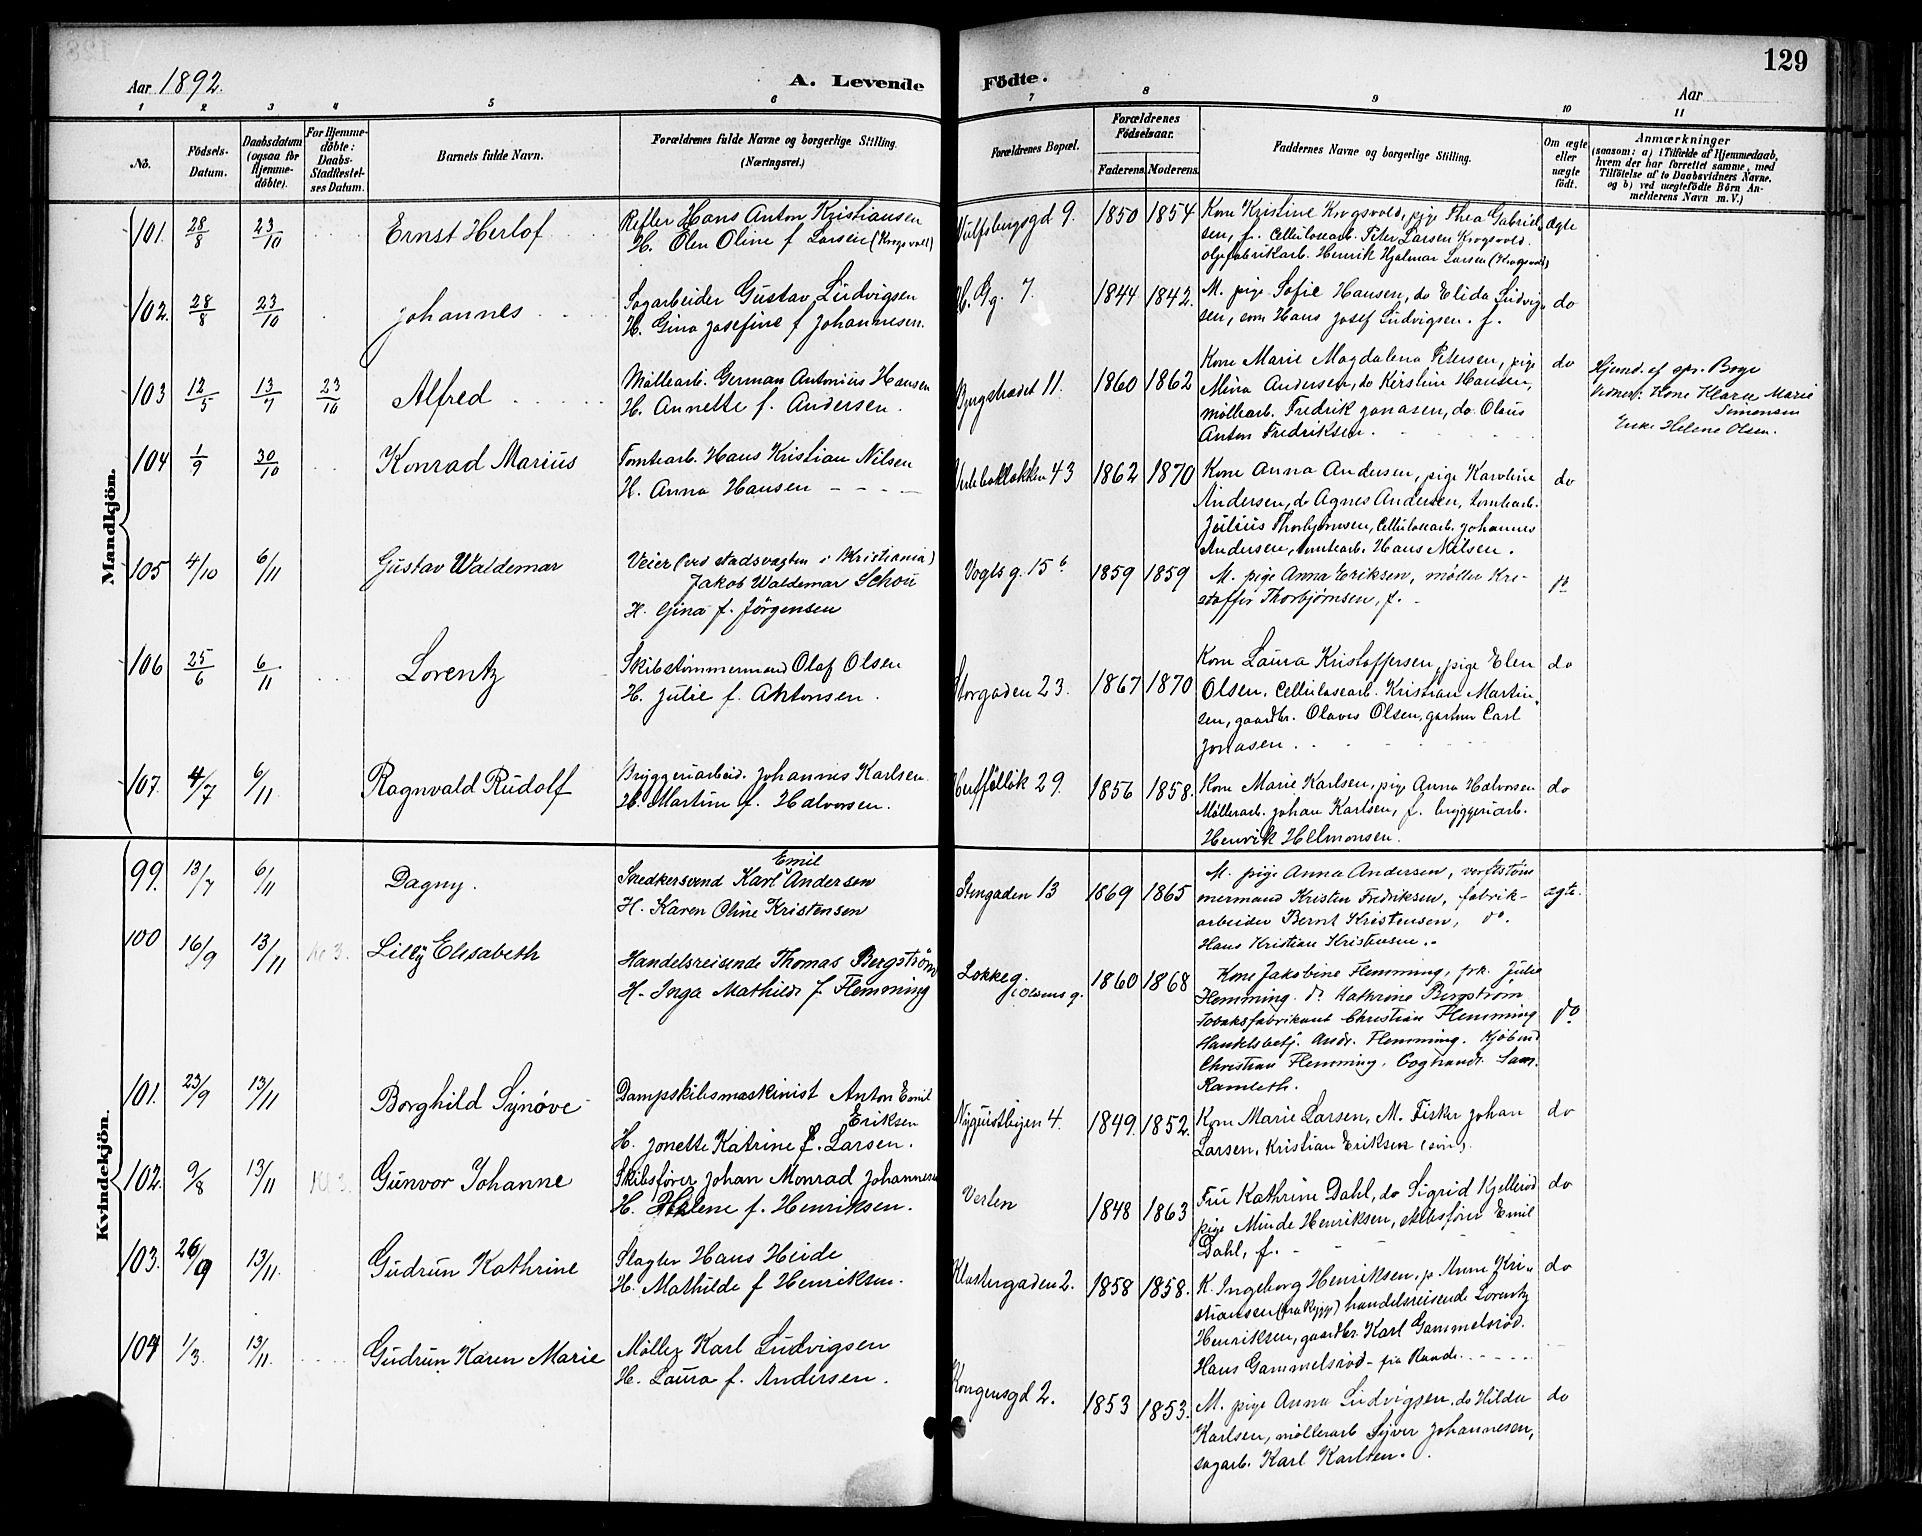 129
Aar 1892.
A. Levende Födte.
Aar
1 2 3 4 5 6 7 8 9 10 11
Nö.
Födsels-Datum.
Daabsdatum (ogsaa for Hjemmedöbte).
For Hjemmedöbte: Daabs-Stadfestelses Datum.
Barnets fulde Navn.
Forældrenes fulde Navne og borgerlige Stilling.
(Næringsvei.)
Forældrenes Bopæl.
Forældrenes Födselsaar.
Faderens. Moderens.
Faddernes Navne og borgerlige Stilling.
Om ægte eller uægte födt.
Anmærkninger
(saasom: a) i Tilfælde af Hjemmedaab, hvem der har forrettet samme, med Tilföielse af to Daabsvidners Navne, og b) ved uægtefödte Börn Anmelderens Navn m. V.)
Mandkjön.
101. 28/8 23/10 Ernst Herlof
Rifler Hans Anton Kristiansen
H. Elen Oline f Larsen (Krogsvold)
Wulfsbergsgd 9. 1850 1854
Kone Kristine Krogsvold, pige Thea Gabriel-
sen, f. Cellulosearb. Peter Larsen Krogsvold.
oljefabrikarb. Henrik Hjalmar Larsen (Krogsvold)
ægte
102. 28/8 23/10 Johannes
Sagarbeider Gustav Ludvigsen
H. Gina Josefine f Johannesen.
7. 1844 1842.
M. pige Sofie Hansen, do Elida Ludvig-
sen, Hans Josef Ludvigsen. f.
do
103 12/5 13/7 23/10 Alfred
Møllearb. German Antonius Hansen
H. Annette f. Andersen.
11. 1860 1862
Kone Marie Magdalena Petersen, pige
Mina Andersen, do Kirstine Hansen,
møllearb. Fredrik Jonasen, do. Olaus
Anton Fredriksen.
do
Hjemd. af spr. Boye
Vidner: Kone Klara Marie
Simonsen
Enke Helene Olsen.
104 1/9 30/10 Konrad Marius
Tomtearb. Hans Kristian Nilsen
H. Anna Hansen
43 1862 1870
Kone Anna Andersen, pige Karoline
Andersen, do Agnes Andersen, tomtearb.
Julius Thorbjørnsen, Cellulosearb. Johannes
Andersen, tomtearb. Hans Nilsen.
do
105 4/10 6/11 Gustav Waldemar
Veier (ved stadsvagten i Kristiania)
Jakob Waldemar Schou
H. Gina f. Jörgensen
Vogts g. 15 b 1859 1859
M. pige Anna Eriksen, møller Kri-
stoffer Thorbjørnsen, f.
do
106 25/6 6/11 Lorentz
Skibstömmermand Olaf Olsen
H. Julie f. Antonsen.
Storgaden 23. 1867 1870
Kone Laura Kristoffersen, pige Elen
Olsen. Cellulosearb. Kristian Martin-
sen, gaardbr. Olaves Olsen, gartner Carl
Jonasen.
do
107. 4/7 6/11 Ragnvald Rudolf
Bryggeriarbeid. Johannes Karlsen
H. Martine f. Halvorsen.
29. 1856 1858.
Kone Marie Karlsen, pige Anna Halvorsen
Møllerarb. Johan Karlsen, f. bryggeriarb.
Henrik Helmonsen.
do
Kvindekjön.
99. 13/7 6/11 Dagny.
Emil
Snedkersvend Karl Andersen
H. Karen Oline Kristensen
Stengaden 13 1869 1865
M. pige Anna Andersen, verftstöm
mermand Kristen Fredriksen, fabrik-
arbeider Bernt Kristensen, do.
Hans Kristian Kristensen.
ægte.
100 16/9 13/11 Lilly Elisabeth
Handelsreisende Thomas Bergström
H. Inga Mathilde f. Flemming
Lokkeg. Olsens g. 1860 1868
Kone Jakobine Flemming, frk. Julie
Flemming. do Kathrine Bergström
Tobaksfabrikant Christian Flemming
Handelsbetj. Andr. Flemming. Kjöbmd
Christian Flemming, Bogtrandr. Sam.
Ramleth.
do
101. 23/9 13/11 Borghild Synöve
Dampskibsmaskinist Anton Emil
Eriksen
H. Jonette Katrine f. Larsen.
4. 1849. 1852.
Kone Marie Larsen, M. Fisker Johan
Larsen, Kristian Eriksen (sön).
do
102. 9/8 13/11 Gunvor Johanne
Skibsförer Johan Monrad Johannesen
H. Helene f. Henriksen.
Verlen 1848 1863
Fru Kathrine Dahl, do Sigrid Kjelleröd
pige Minde Henriksen, skibsförer Emil
Dahl, f.
do
103. 26/9 13/11. Gudrun Kathrine
Slagter Hans Heide
H. Mathilde f Henriksen.
Klostergaden 2. 1858 1858.
K. Ingeborg Henriksen, p. Anne Kri-
stiansen handelsreisende Lorentz
Henriksen, gaardbr. Karl Gammelsröd.
Hans Gammelsröd - fra Raade.
do
104 1/3. 13/11. Gudrun Karen Marie
Møller Karl Ludvigsen
H. Laura f. Andersen.
Kongensgd 2. 1853 1853.
M. pige Anna Ludvigsen, do Hilda
Karlsen, møllerarb Syver Johannesen,
sagarb. Karl Karlsen.
do